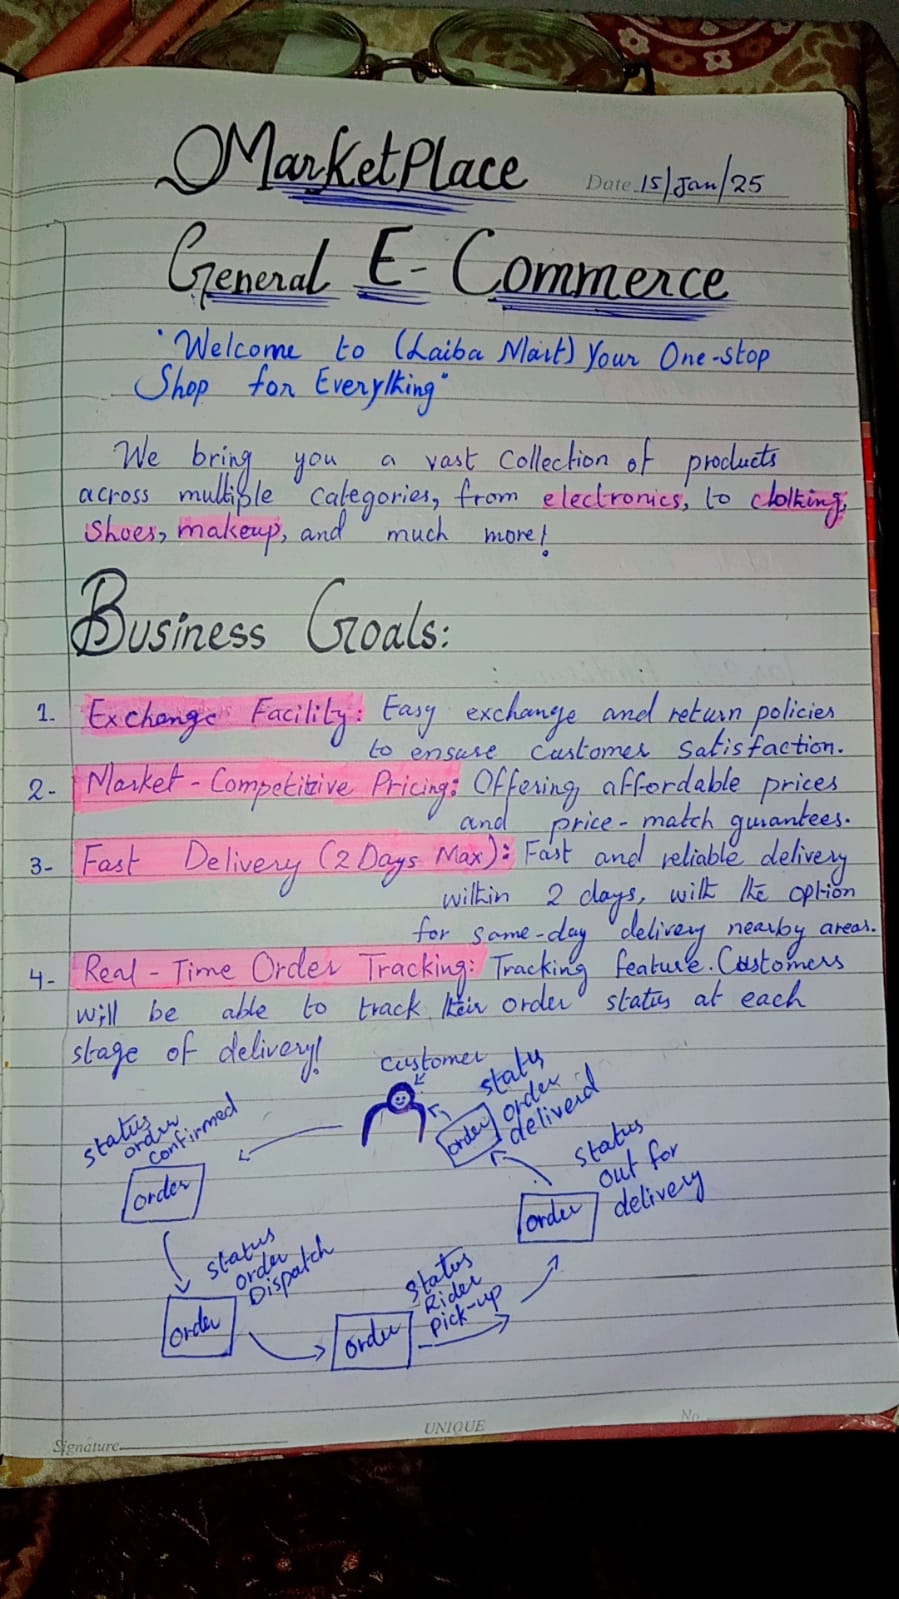 MarketPlace
Date 15/Jan/25
General E-Commerce
"Welcome to (Laiba Mart) Your One-stop
Shop for Everything"
We bring you a vast collection of products
across multiple categories, from electronics, to clothing,
Shoes, makeup, and much more!
Business Goals:
1. Exchange Facility: Easy exchange and return policies
to ensure customer satisfaction.
2- Market-Competitive Pricing: Offering affordable prices
and price-match gurantees.
3- Fast Delivery (2 Days Max): Fast and reliable delivery
within 2 days, with the option
for same-day delivery nearby areas.
4- Real-Time Order Tracking: Tracking feature. Customers
will be able to track their order status at each
stage of delivery!
customer
status
order
confirmed
order
status
order
Dispatch
order
status
Rider
pick-up
order
status
out for
delivery
order
status
order
deliverd
order
Signature
UNIQUE
No